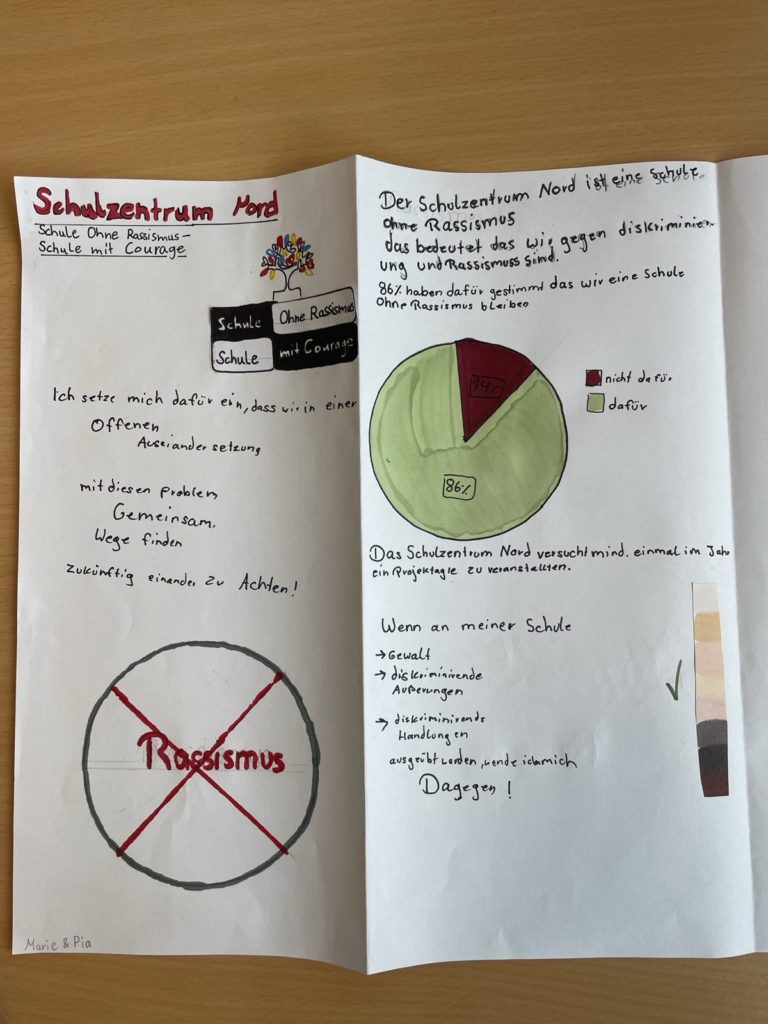 Schulzentrum Nord
Schule Ohne Rassismus –
Schule mit Courage
Schule Ohne Rassismus
Schule mit Courage
Ich setze mich dafür ein, dass wir in einer
Offenen
Auseiander setzung
mit diesen Problem
Gemeinsam.
Wege finden
Zukünftig einander zu Achten!
Rassismus
Marie & Pia
Der Schulzentrum Nord ist eine Schule
ohne Rassismus
das bedeutet das wir gegen diskriminier-
ung und Rassismuss sind.
86% haben dafür gestimmt das wir eine Schule
Ohne Rassismus bleiben
14%
nicht dafür
dafür
86%
Das Schulzentrum Nord versucht mind. einmal im Jahr
ein Projektagle zu veranstallten.
Wenn an meiner Schule
→ Gewalt
→ diskriminirende
Äußerungen
→ diskriminirende
Handlungen
ausgeübt werden, wende ich mich
Dagegen!